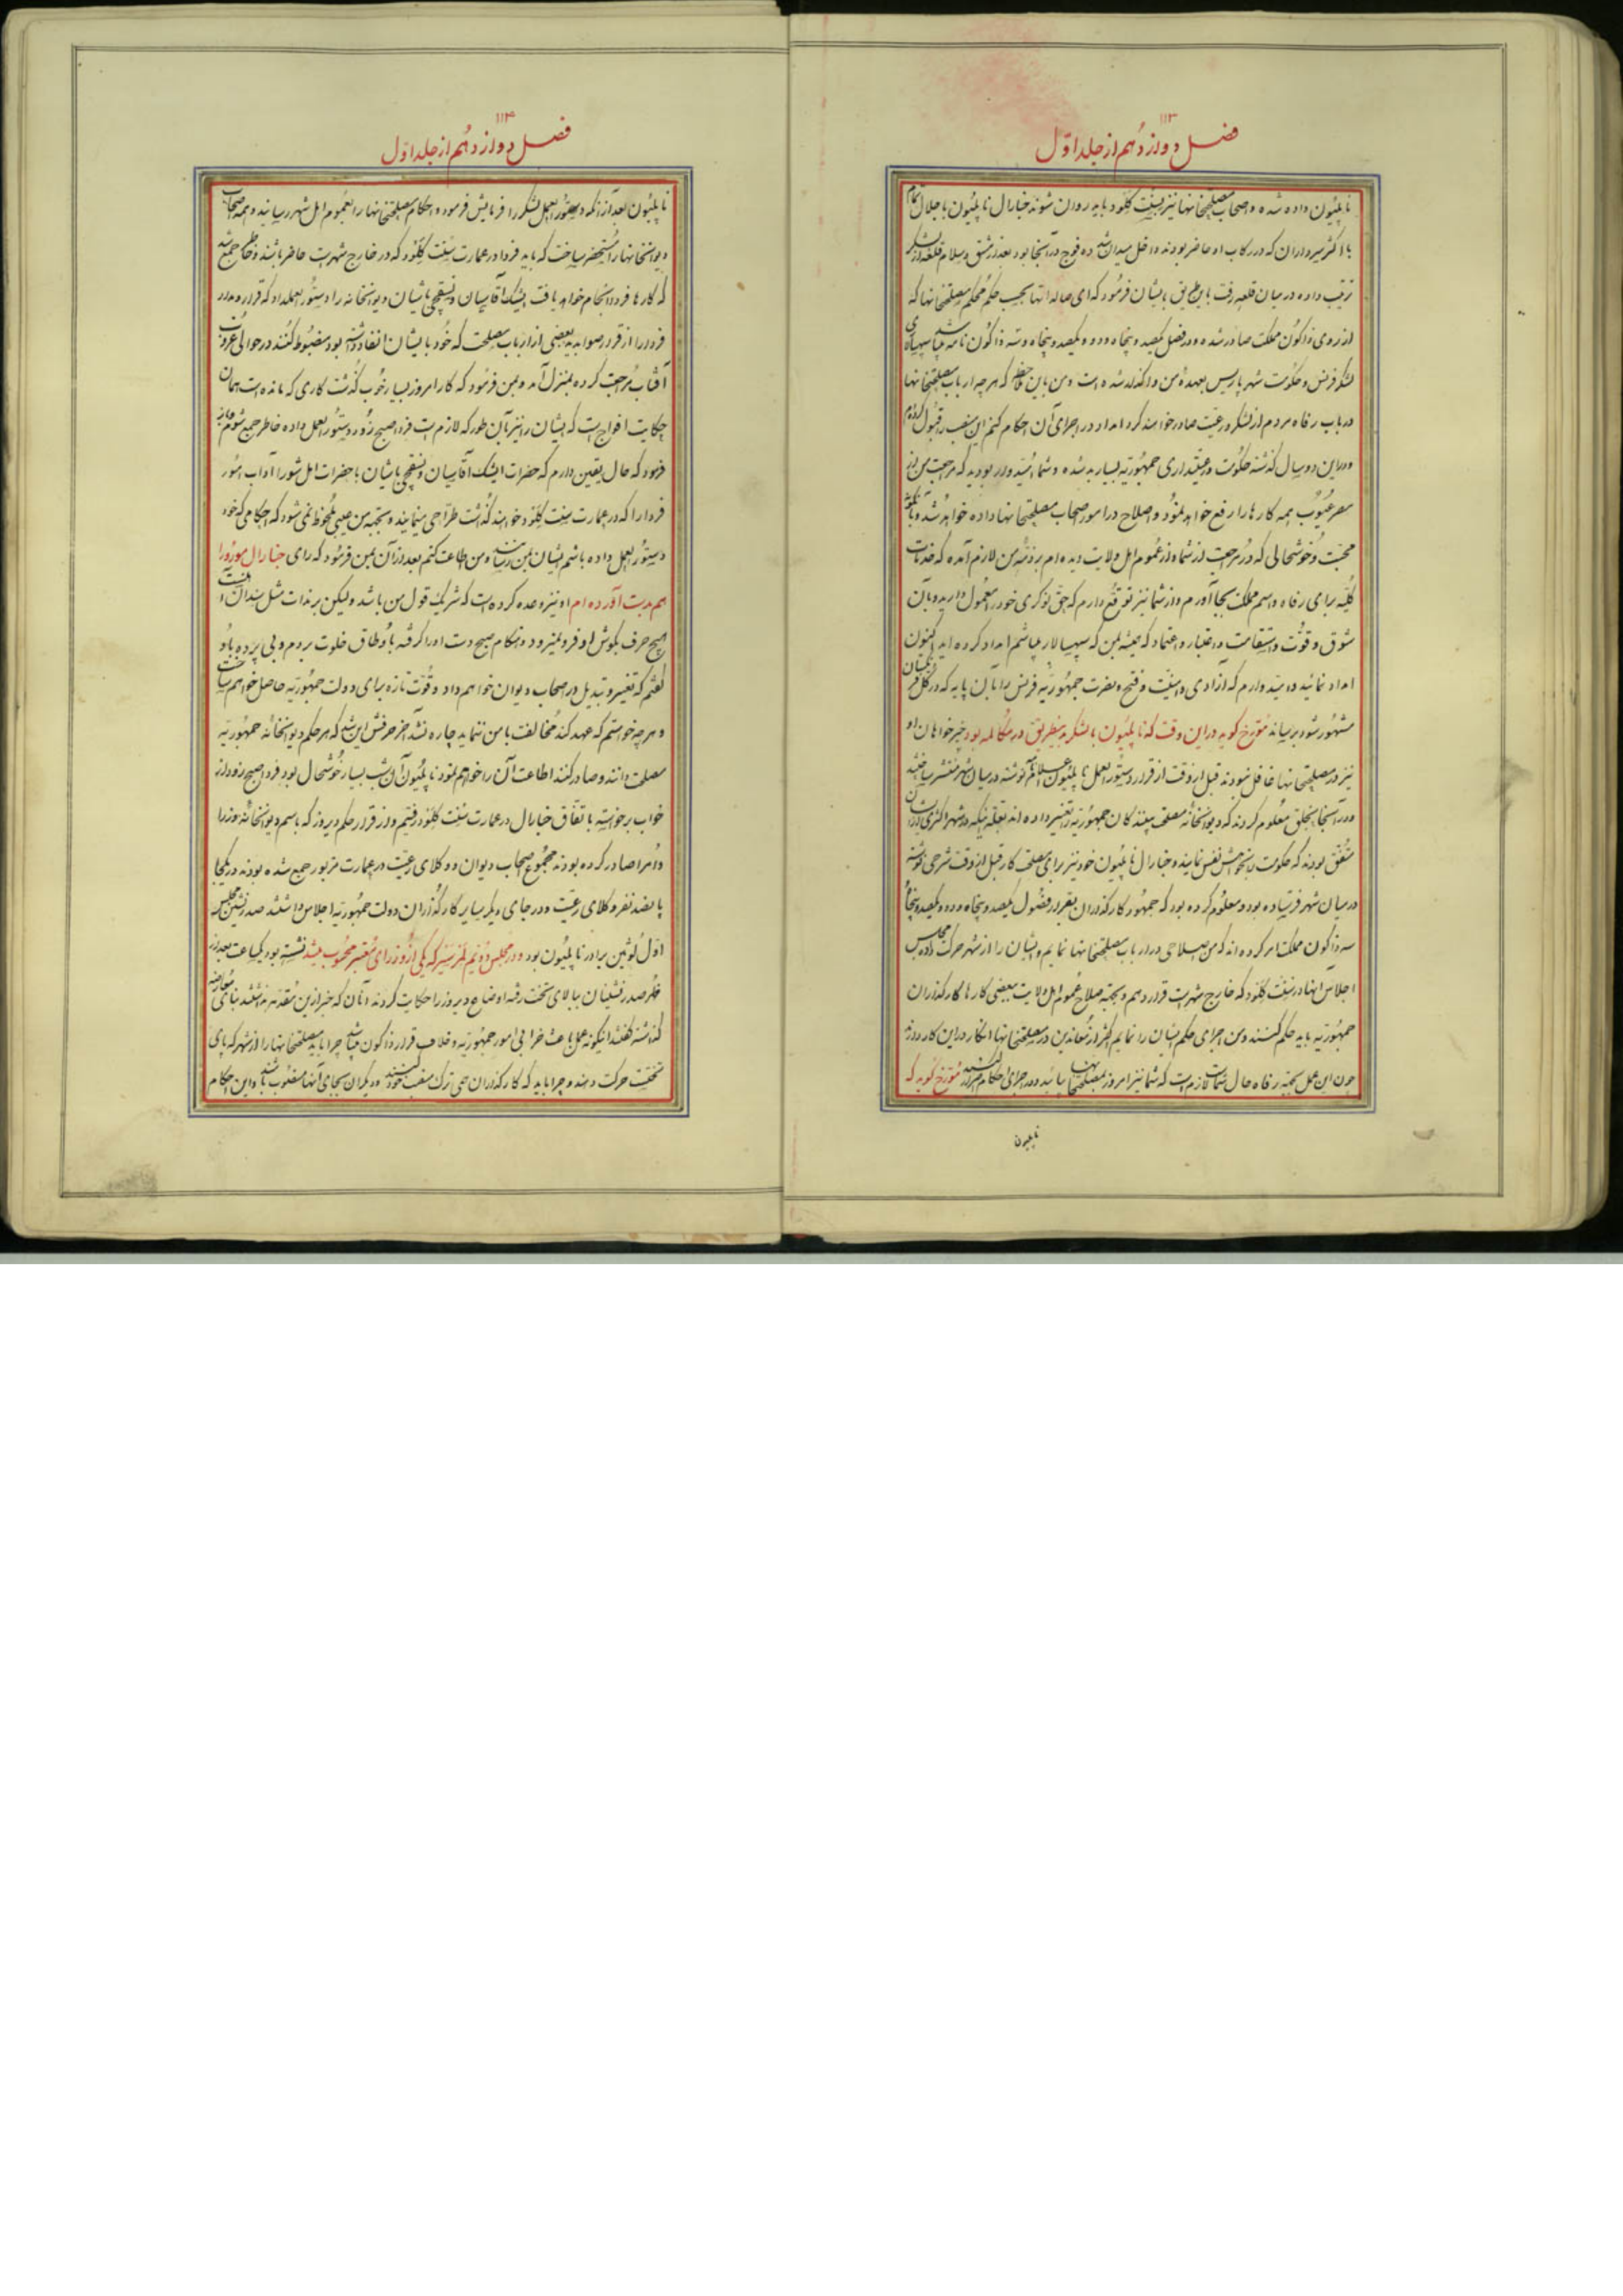 ۱۱۳
فصل دوازدهم از جلد اول
ناپلیون داده شده و اصحاب مصلحتخانها نیز بسِنت کلود باید روان شوند جنارال ناپلیون با جلال تمام
با اکثر سرداران که در رکاب او حاضر بودند داخل میدان شد ده فوج در آنجا بود بعد از مشق و سلام قلعه از لشکر
ترتیب داده در میان قلعه رفت باین طریق بایشان فرمود که ای صالداتها بحسب حکم محکم مصلحتخانها که
از روی ذاکون مملکت صادر شده و در فصل یکصد و پنجاه و دو و یکصد و پنجاه و سه ذاکون نامه میباشد سپهسالاری
لشکر فرنس و حکومت شهر پاریس بعهدۀ من واگذار شده است و من باین که هر چه ارباب مصلحتخانها
در باب رفاه مردم از لشکر و رعیت صادر خواهند کرد امداد در اجرای آن احکام کنم این منصب را قبول کردم
و در این دو سال گذشته حکومت و رعیتداری جمهوریّه بسیار بد شده و شما امیدوار بودید که مراجعت من از
مصر عیوب همه کارها را رفع خواهد نمود و اصلاح در امور اصحاب مصلحتخانها داده خواهد شد و با
محبّت و خوشحالی که در مراجعت از شما و از عموم اهل ولایت دیده‌ام بر ذمّه من لازم آمده که خدمات
کلّیه برای رفاه و اسم مملکت بجا آورم و از شما نیز توقع دارم که حق نوکری خود را معمول دارید و بآن
شوق و قوّت و استقامت و اعتبار و اعتماد که همیشه بمن که سپهسالار میباشم امداد کرده‌اید اکنون
امداد نمائید و امیدوارم که آزادی و امنیّت و فتح و نصرت جمهوریّه فرنس را بآن پایه که در کل فرنگستان
مشهور شود برساند مورّخ گوید در این وقت که ناپلیون با لشکر بدینطریق در مکالمه بود خیرخواهان او
نیز در مصلحتخانها غافل نبودند قبل از وقت از قرار دستور العمل ناپلیون اعلام نوشته در میان شهر منتشر ساختند
و در آنجا بخلق معلوم کردند که دیوانخانه مصلحت بینندکان جمهوریّه را تغییر داده‌اند بعلّه اینکه در شهر اکثری از ایشان
متّفق بودند که حکومت را بخواهش نفس نمایند و جنارال ناپلیون خود نیز برای مصلحت کار قبل از وقت شرحی نوشته
در میان شهر فرستاده بود و معلوم کرده بود که جمهور کارگذاران بقرار فصول یکصد و پنجاه و دو و یکصد و پنجاه
سه ذاکون مملکت امر کرده‌اند که من صلاحی در ارباب مصلحتخانها نمایم و ایشان را از شهر حرکت داده مجلس
اجلاس آنها در سِنت کلود که خارج شهر است قرار دهم و بجهة صلاح عموم اهل ولایت بعضی کارها کارگذاران
جمهوریّه باید حکم کنند و من اجرای حکم ایشان را نمایم اکثر از معاندین در مصلحتخانها انکار در این کار دارند
چون این عمل بجهة رفاه حال شماست لازم است که شما نیز امروز بمصلحتخانها بیائید و در اجرای احکام مورّخ گوید که
ناپلیون
۱۱۴
فصل دوازدهم از جلد اول
ناپلیون بعد از آنکه دستور العمل لشکر را فرمایش فرمود و احکام مصلحتخانها را بعموم اهل شهر رسانید و همه اصحاب
دیوانخانها را مستحضر ساخت که باید فردا در عمارت سِنت کلود که در خارج شهر است حاضر باشند و خاطر جمع شد
که کارها فردا انجام خواهد یافت ایشک آقاسیان و نسقچی باشیان دیوانخانه را دستور العمل داد که قرار و مدار
فردا را از قرار صوابدید بعضی از ارباب مصلحت که خود با ایشان انفاذ داشته بود مضبوط کنند در حوالی غروب
آفتاب مراجعت کرده بمنزل آمد و بمن فرمود که کار امروز بسیار خوب گذشت کاری که مانده است همان
حکایت افواج است که ایشان را نیز بآن طور که لازم است فردا صبح زود دستور العمل داده خاطر جمع شوم
فرمود که حال یقین دارم که حضرات ایشک آقاسیان و نسقچی باشیان با حضرات اهل شورا آداب امور
فردا را که در عمارت سِنت کلود خواهند گذشت طرّاحی مینمایند و بجهة من عیبی ملحوظ نمی شود که احکامی که خود
دستور العمل داده باشم ایشان بمن رسانند و من اطاعت کنم بعد از آن بمن فرمود که رای جنارال مورو را
هم بدست آورده‌ام او نیز وعده کرده است که شریک قول من باشد ولیکن برنادت مثل سندان است
هیچ حرف بگوش او فرو نمیرود و هنگام صبح دست او را گرفته باوطاق خلوت بردم و بی پرده باو
گفتم که تغییر و تبدیل در اصحاب دیوان خواهم داد و قوّت تازه برای دولت جمهوریّه حاصل خواهم ساخت
و هر چه خواستم که عهد کند مخالفت با من ننماید چاره نشد آخر حرفش این شد که هر حکم دیوانخانه جمهوریّه
مصلحت دانند و صادر کنند اطاعت آن را خواهم نمود ناپلیون آن شب بسیار خوشحال بود فردا صبح زود از
خواب برخواسته باتّفاق جنارال در عمارت سِنت کلود رفتیم و از قرار حکم دیروز که باسم دیوانخانه وزرا
و امرا صادر کرده بودند مجموع اصحاب دیوان و وکلای رعیّت در عمارت مزبور جمع شده بودند در یکجا
پانصد نفر وکلای رعیّت و در جای دیگر سایر کارگذاران دولت جمهوریّه اجلاس داشتند صدر نشین مجلس
اول لوئین برادر ناپلیون بود و در مجلس دویم لمرسیر که یکی از وزرای معتبر محسوب میشد نشسته بود یکساعت بعد از
ظهر صدر نشینان ببالای تخت رفته اوضاع دیروز را حکایت کردند آنان که خبر از این مقدمه نداشتند بنای معارضه
گذاشته گفتند اینگونه عمل باعث خرابی امور جمهوریّه و خلاف قرار ذاکون میباشد چرا باید مصلحتخانها را از شهر که پای
تختست حرکت دهند و چرا باید که کارگذاران حی ترک منصب خود کنند و دیگران بجای آنها منصوب باشند و این احکام